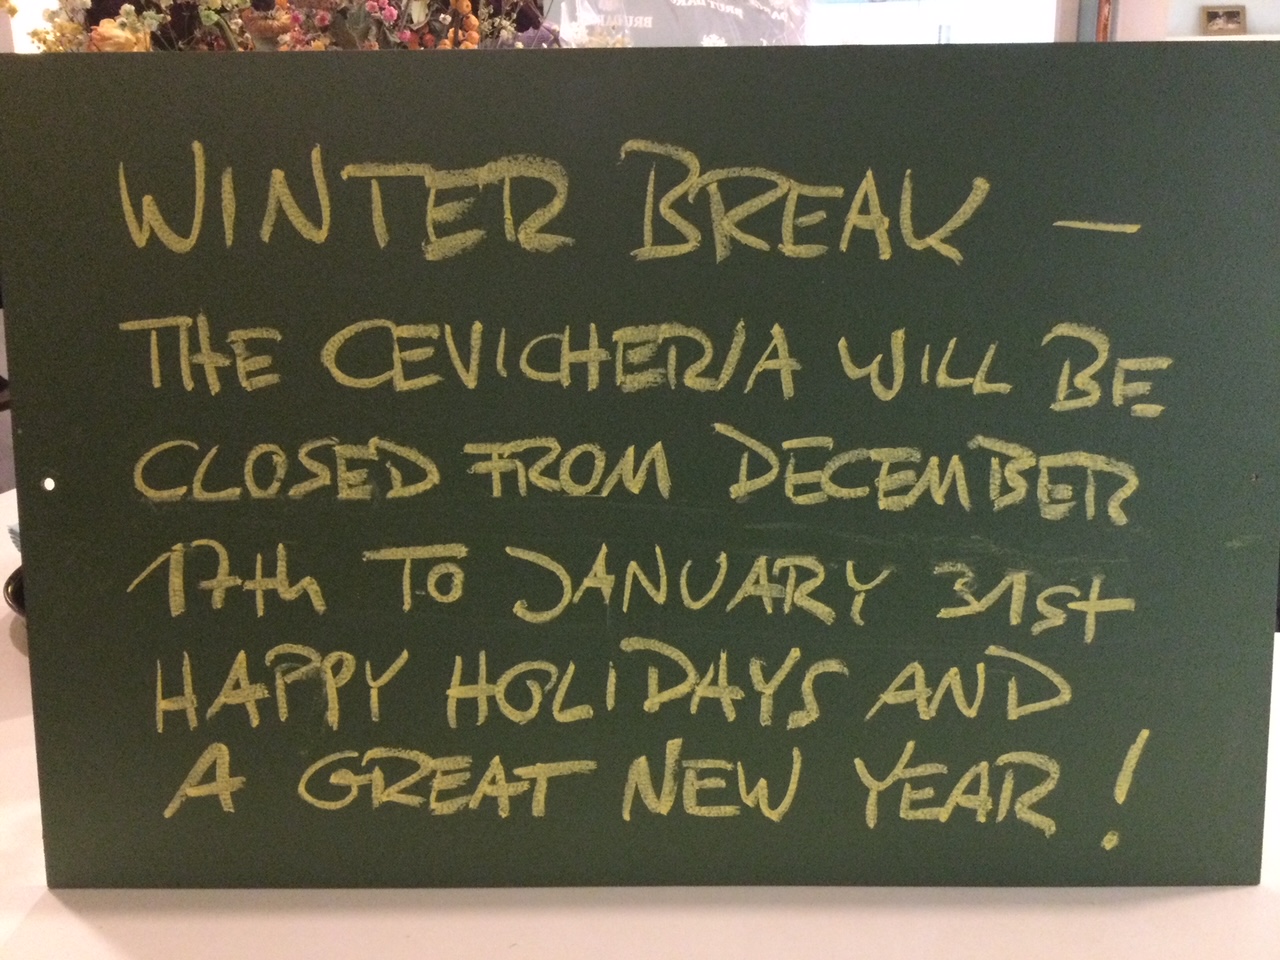 WINTER BREAK —
THE CEVICHERIA WILL BE
CLOSED FROM DECEMBER
17th TO JANUARY 31st
HAPPY HOLIDAYS AND
A GREAT NEW YEAR!